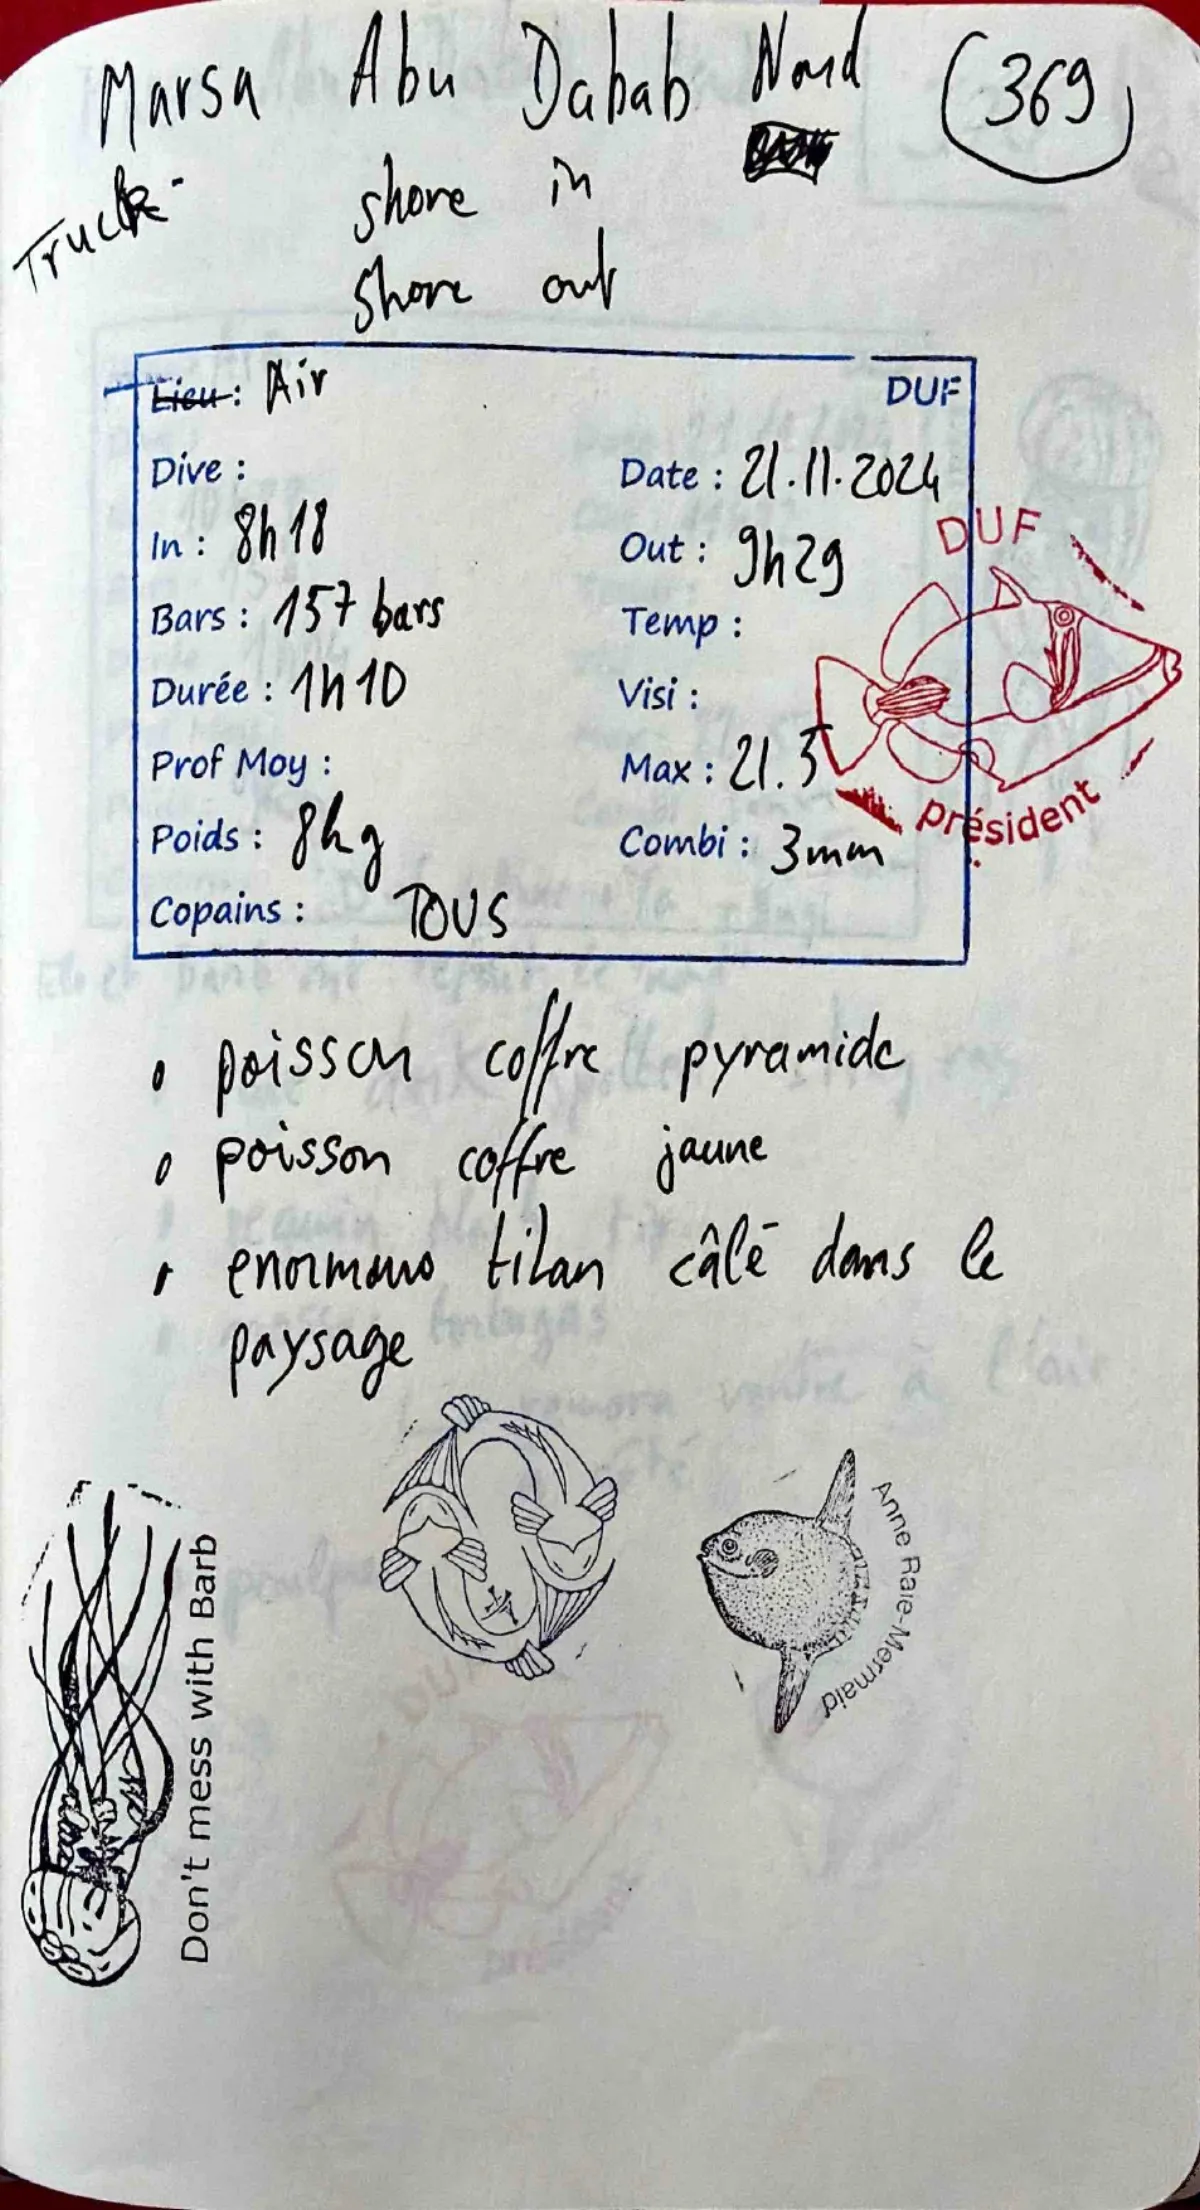 Marsa Abu Dabab Nord 369
Truck
shore in
shore out
Lieu : Air DUF
Dive : Date : 21.11.2024
In : 8h18 Out : 9h29
Bars : 157 bars Temp :
Durée : 1h10 Visi :
Prof Moy : Max : 21.5
Poids : 8kg Combi : 3mm
Copains : TOUS
DUF
président
• poisson coffre pyramide
• poisson coffre jaune
• enormous titan câlé dans le
paysage
Don't mess with Barb
Anne Raie-Mermaid